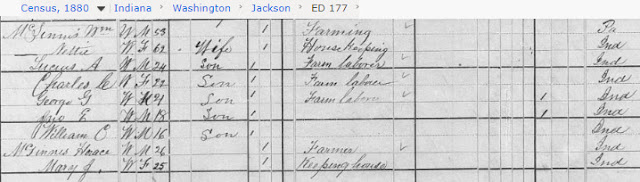 Census, 1880 ▼ › Indiana › Washington › Jackson › ED 177 ›
McGinnis Wm W M 53 1 Farming ✓ Pa
Nettie W F 62 Wife 1 House Keeping Ind
Lucius A W M 24 Son 1 Farm laborer ✓ Ind
Charles W F 22 Son 1 Farm laborer ✓ Ind
George G W M 21 Son 1 Farm laborer ✓ 1 Ind
E W M 18 Son 1 1 Ind
William O W M 16 Son 1 Ind
McGinnis Horace W M 26 1 Farmer ✓ Ind
Mary J. W F 25 1 Keeping house Ind